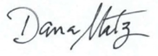 Dana Matz